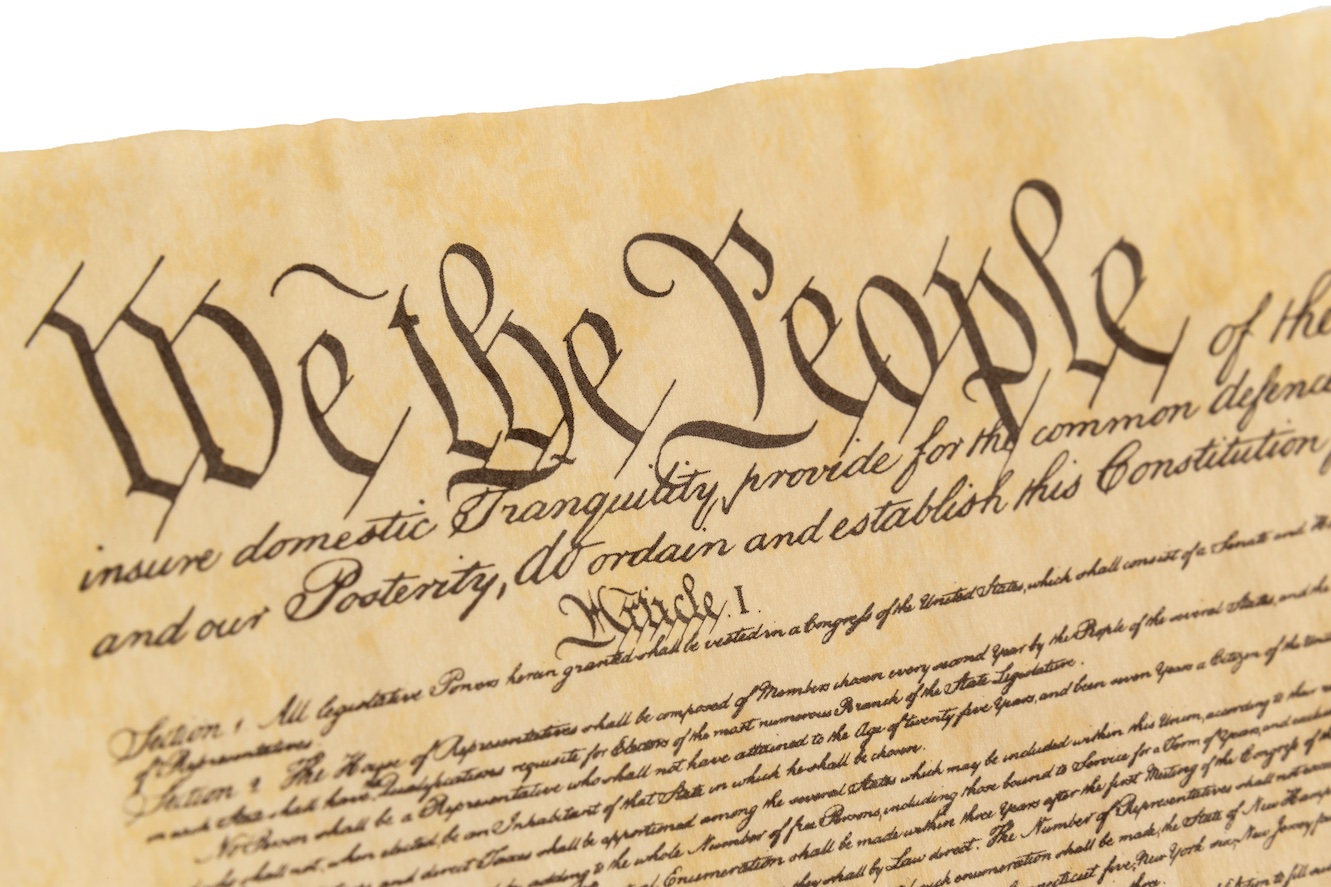 We the People of the
insure domestic Tranquility, provide for the common defence
and our Posterity, do ordain and establish this Constitution
Article. I.
Section 1 All legislative Powers herein granted shall be vested in a Congress of the United States, which shall consist of a Senate and
of Representatives.
Section 2 The House of Representatives shall be composed of Members chosen every second Year by the People of the several States, and the
in each State shall have the Qualifications requisite for Electors of the most numerous Branch of the State Legislature.
No Person shall be a Representative who shall not have attained to the Age of twenty five Years, and been seven Years a Citizen of the
shall not, when elected, be an Inhabitant of that State in which he shall be chosen.
and direct Taxes shall be apportioned among the several States which may be included within this Union, according to their
by adding to the whole Number of free Persons, including those bound to Service for a Term of Years, and
Enumeration shall be made within three Years after the first Meeting of the Congress of the
they shall by Law direct. The Number of Representatives shall not
such enumeration shall be made, the State of New
five, New York six, New Jersey